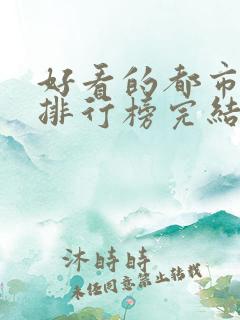 好看的都市
排行榜完結
沐時時
未经同意禁止转载